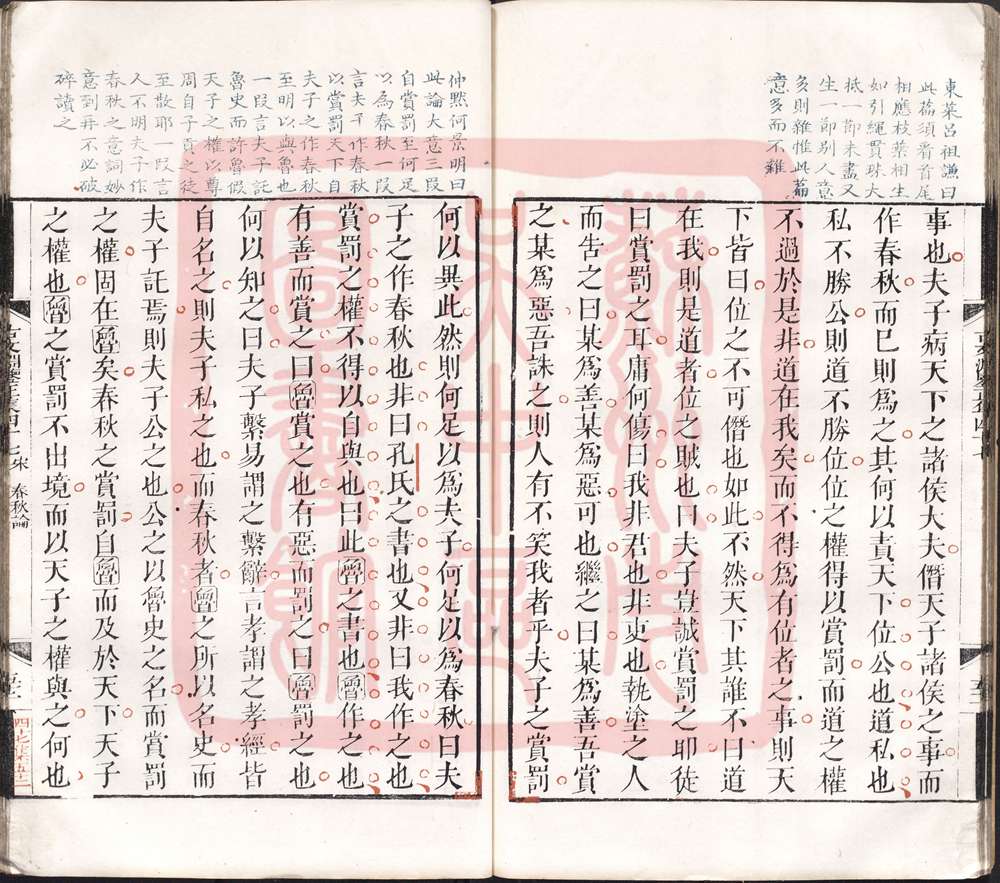 東萊呂祖謙曰
此篇須看首尾
相應枝葉相生
如引繩貫珠大
抵一節未盡又
生一節別人意
多則雜惟此篇
意多而不雜
事也夫子病天下之諸侯大夫僭天子諸侯之事而
作春秋而已則爲之其何以責天下位公也道私也
私不勝公則道不勝位位之權得以賞罰而道之權
不過於是非道在我矣而不得爲有位者之事則天
下皆曰位之不可僭也如此不然天下其誰不曰道
在我則是道者位之賊也曰夫子豈誠賞罰之耶徒
曰賞罰之耳庸何傷曰我非君也非吏也執塗之人
而告之曰某爲善某爲惡可也繼之曰某爲善吾賞
之某爲惡吾誅之則人有不笑我者乎夫子之賞罰
仲默何景明曰
此論大意三段
自賞罰至何足
以爲春秋一段
言夫子作春秋
以賞罰天下自
夫子之作春秋
至明以與魯也
一段言夫子託
魯史而許魯假
天子之權以尊
周自子貢之徒
至散耶一段言
人不明夫子作
春秋之意詞妙
意到再不必破
碎讀之
何以異此然則何足以爲夫子何足以爲春秋曰夫
子之作春秋也非曰孔氏之書也又非曰我作之也
賞罰之權不得以自與也曰此魯之書也魯作之也
有善而賞之曰魯賞之也有惡而罰之曰魯罰之也
何以知之曰夫子繫易謂之繫辭言孝謂之孝經皆
自名之則夫子私之也而春秋者魯之所以名史而
夫子託焉則夫子公之也公之以魯史之名而賞罰
之權固在魯矣春秋之賞罰自魯而及於天下天子
之權也魯之賞罰不出境而以天子之權與之何也
春秋論